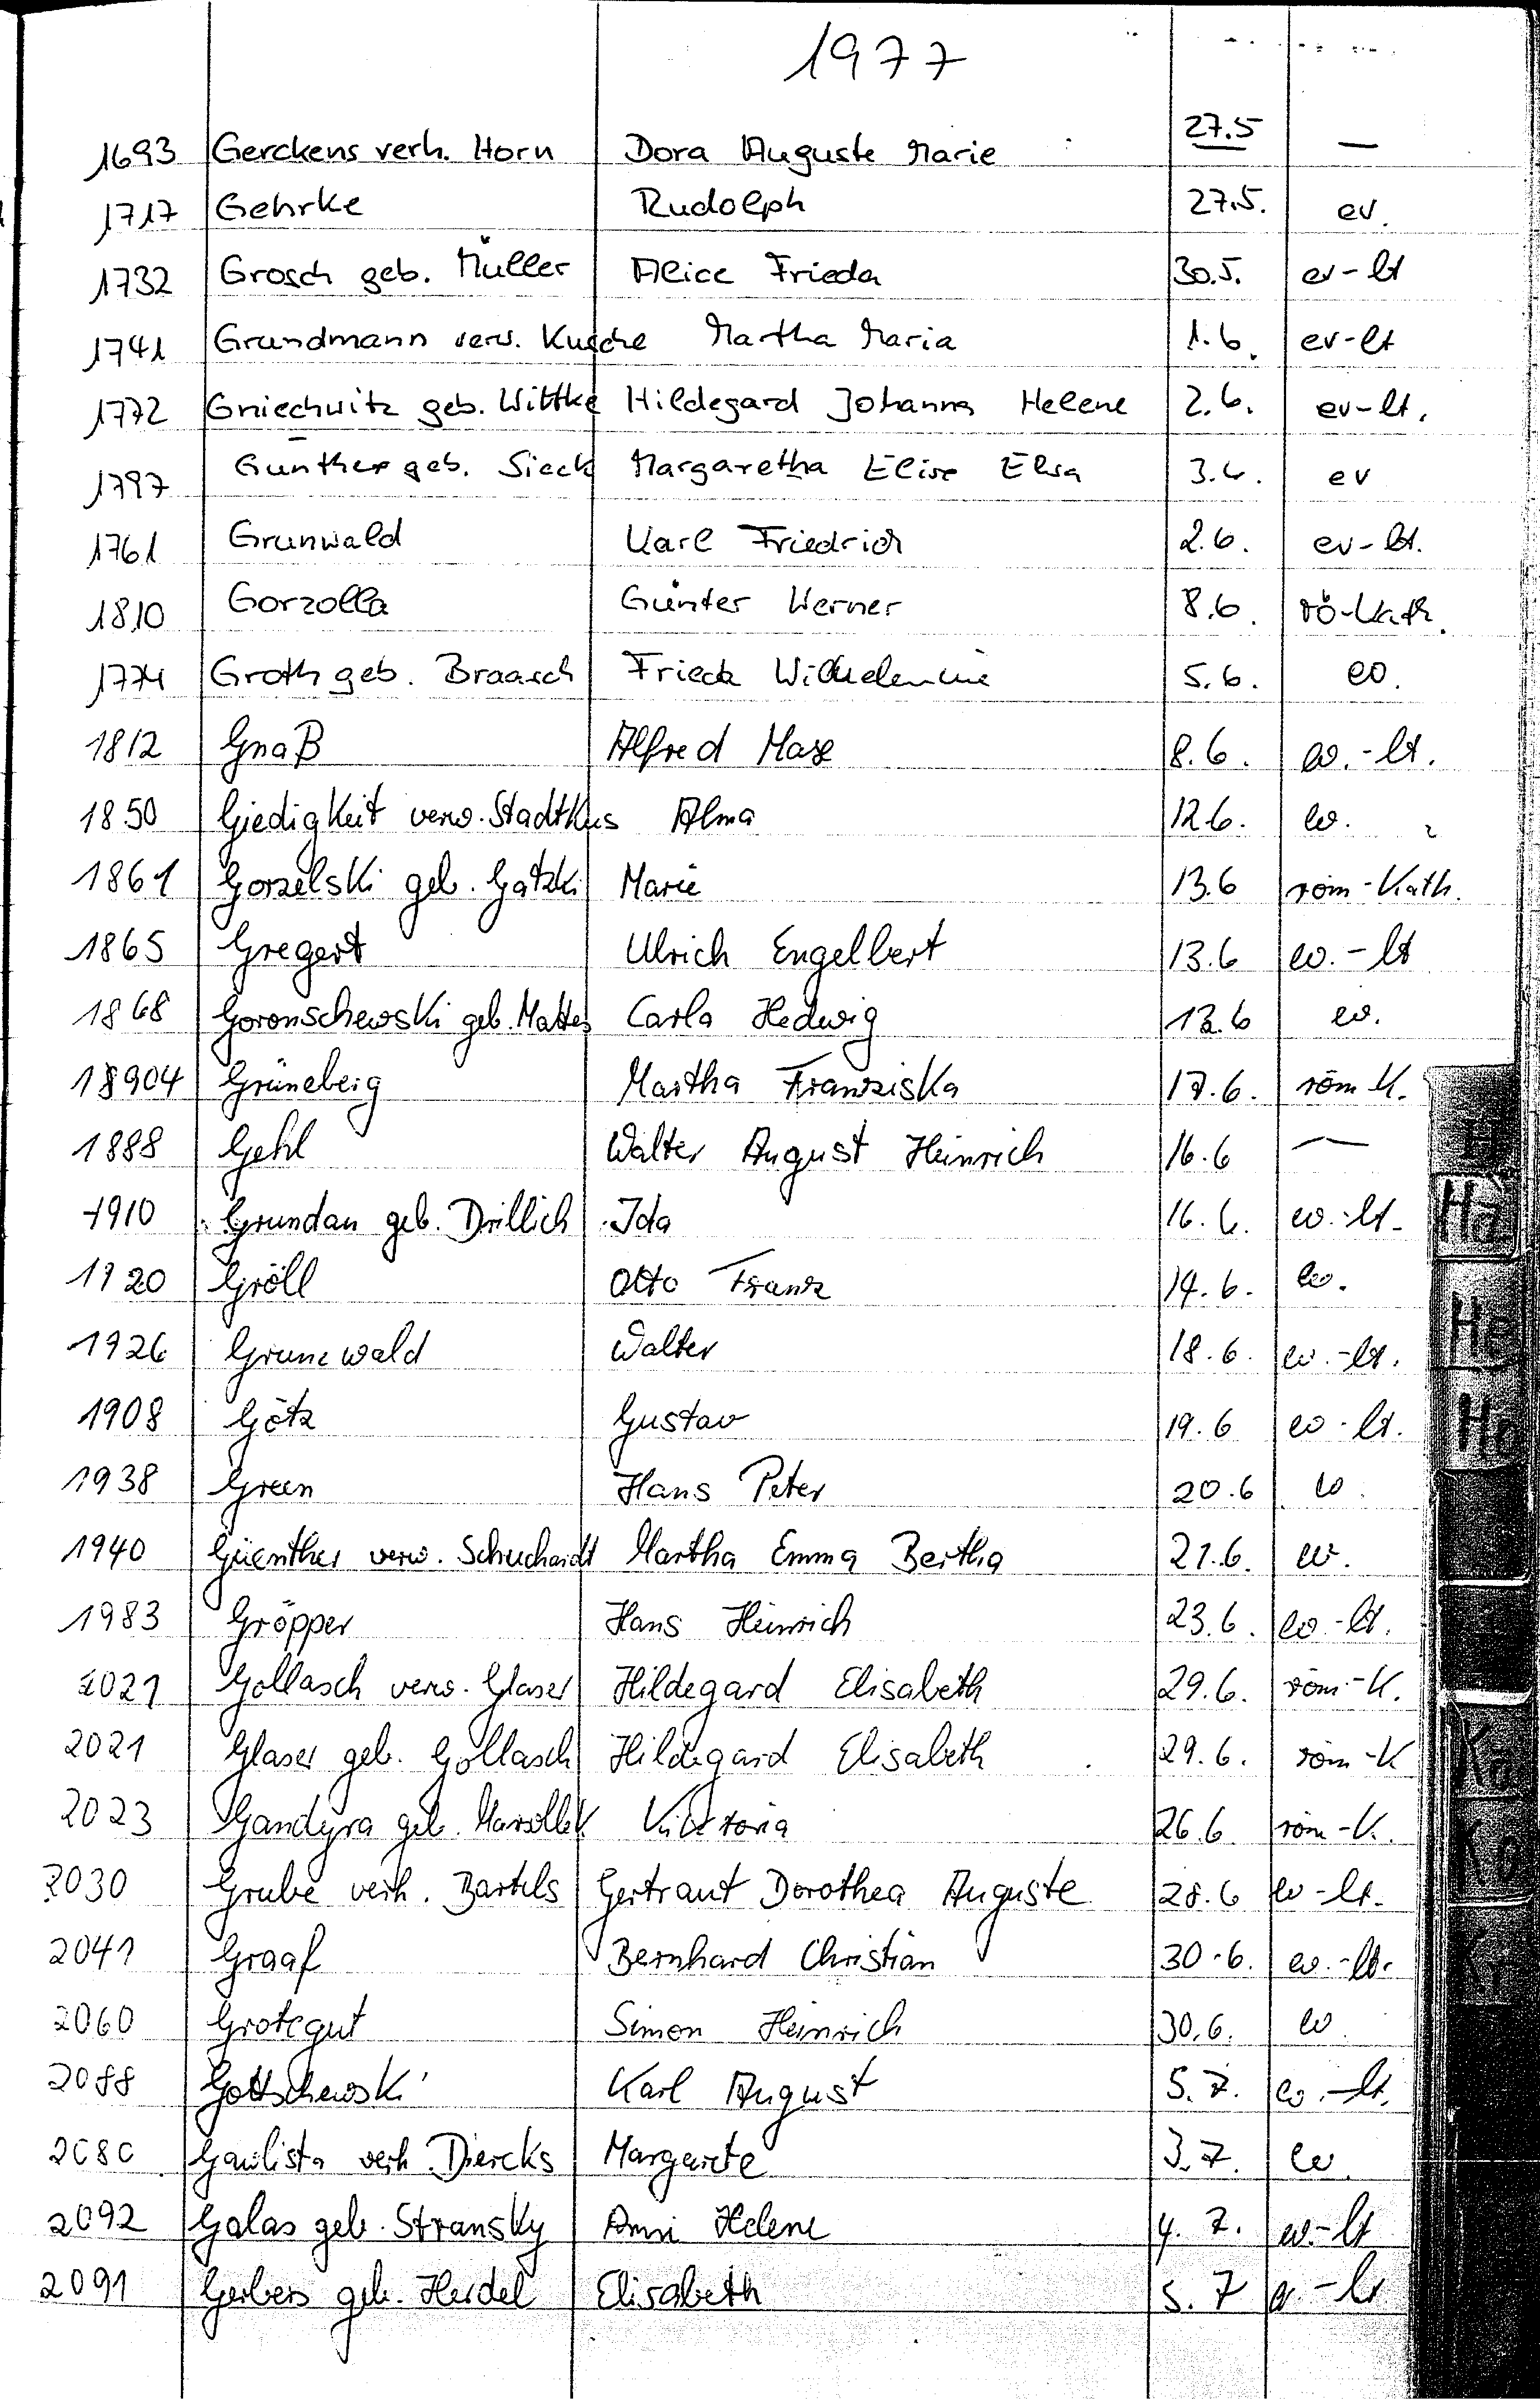 1977
1693 Gerckens verh. Horn Dora Auguste Marie 27.5 —
1717 Gehrke Rudolph 27.5. ev.
1732 Grosch geb. Müller Alice Frieda 30.5. ev-lt
1741 Grundmann verw. Kusche Martha Maria 1.6. ev-lt
1772 Gniechwitz geb. Wittke Hildegard Johanna Helene 2.6. ev-lt.
1797 Günther geb. Sieck Margaretha Elise Elsa 3.6. ev
1761 Grunwald Karl Friedrich 2.6. ev-lt.
1810 Gorzolla Günter Werner 8.6. rö-kath.
1774 Groth geb. Braasch Frieda Wilhelmine 5.6. ev.
1812 Gnaß Alfred Max 8.6. ev.-lt.
1850 Giedigkeit verw. Stadtkus Alma 12.6. ev.
1861 Gorzelski geb. Gatzki Marie 13.6 röm-Kath.
1865 Gregert Ulrich Engelbert 13.6 ev.-lt
1868 Goronschewski geb. Mattes Carla Hedwig 13.6 ev.
18904 Grüneberg Martha Franziska 17.6. röm K.
1888 Gehl Walter August Heinrich 16.6 —
1910 Grundau geb. Drillich Ida 16.6. ev.-lt.
1920 Gröll Otto Franz 14.6. ev.
1926 Grunewald Walter 18.6. ev.-lt.
1908 Götz Gustav 19.6 ev-lt.
1938 Green Hans Peter 20.6 ev.
1940 Guenther verw. Schuchardt Martha Emma Bertha 21.6. ev.
1983 Gröpper Hans Heinrich 23.6. ev.-lt.
2021 Gollasch verw. Glaser Hildegard Elisabeth 29.6. röm-K.
2021 Glaser geb. Gollasch Hildegard Elisabeth 29.6. röm-K
2023 Gandyra geb. Viktoria 26.6. röm-K.
2030 Grube verh. Bartels Gertraut Dorothea Auguste 28.6 ev-lt.
2041 Graaf Bernhard Christian 30.6. ev.-lt.
2060 Grotegut Simon Heinrich 30.6. ev.
2088 Gottschewski Karl August 5.7. ev.-lt.
2080 Gawlista verh. Diercks Margarete 3.7. ev.
2092 Galas geb. Stransky Anni Helene 4.7. ev.-lt
2091 Gerbers geb. Heidel Elisabeth 5.7 ev.-lt
H
Ha
He
Ho
Ka
Ko
Kr